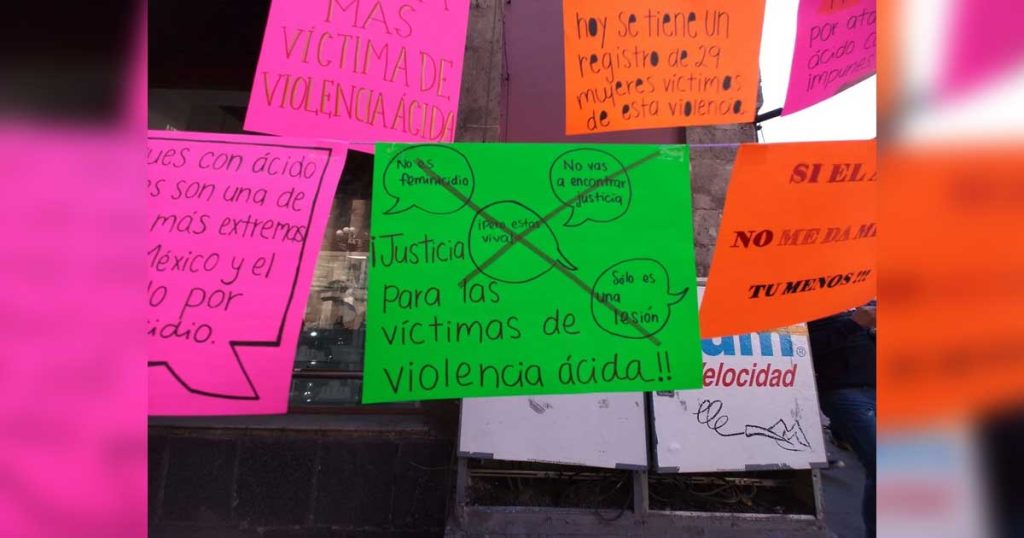 MAS
VÍCTIMA DE
VIOLENCIA ÁCIDA
hoy se tiene un
registro de 29
mujeres víctimas
de esta violencia.
por ata
ácido c
impunes
ues con ácido
es son una de
más extremas
México y el
o por
idio.
No es
feminicidio
No vas
a encontrar
justicia
¡Pero estas
viva!
Sólo es
una
lesión
¡Justicia
para las
víctimas de
violencia ácida!!
SI EL A
NO ME DA MI
TU MENOS!!!
um®
Velocidad